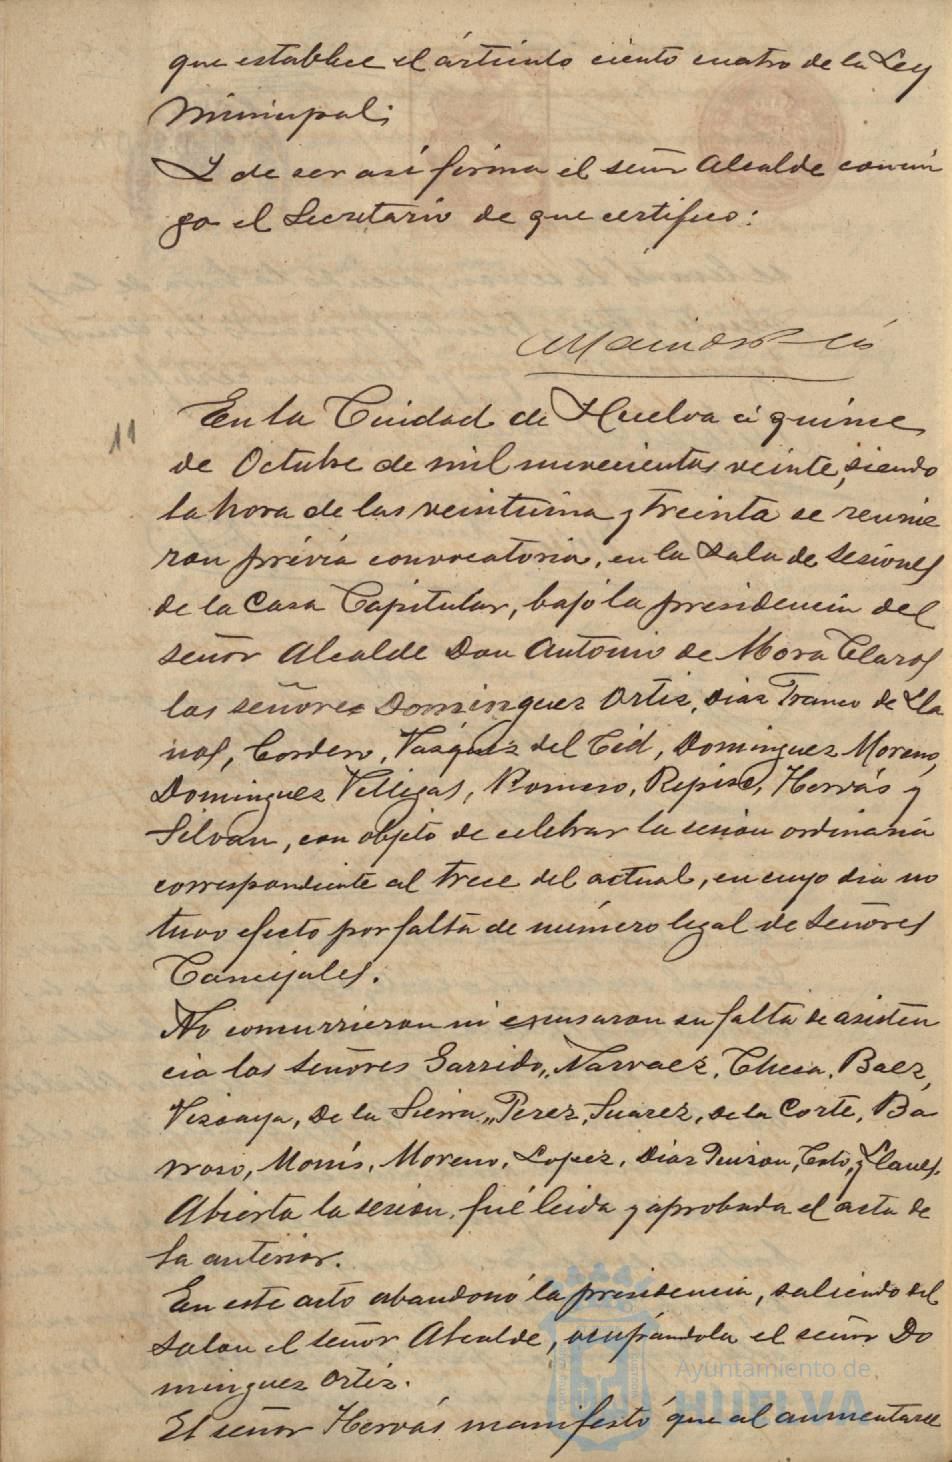 que establece el ártículo ciento cuatro de la Ley
Municipal;
Y de ser así firma el señor Alcalde conmi
go el Secretario de que certifico:
11
En la Ciudad de Huelva á quince
de Octubre de mil novecientos veinte, siendo
la hora de las veintiuna y treinta se reunie
ron prévia convocatoria, en la Sala de Sesiones
de la Casa Capitular, bajo la presidencia del
señor Alcalde Don Antonio de Mora Claros
los señores Dominguez Ortiz, Diaz Franco de Lla
nos, Cordero, Vazquez del Cid, Dominguez Moreno,
Dominguez Villegas, Romero, Repiso, Hervás y
Silván, con objeto de celebrar la sesion ordinaria
correspondiente al trece del actual, en cuyo dia no
tuvo efecto por falta de número legal de Señores
Concejales.
No concurrieron ni escusaron su falta de asisten
cia los Señores Garrido, Narvaez, Checa, Baez,
Vizcaya, De la Sierra, Perez, Suarez, de la Corte, Ba
rroso, Monís, Moreno, Lopez, Diaz Quizon, y Llanes.
Abierta la sesion, fué leida y aprobada el acta de
la anterior.
En este acto abandonó la presidencia, saliendo del
Salon el señor Alcalde, ocupándola el señor Do
minguez Ortiz.
El señor Hervás manifestó que al aumentarse
Ayuntamiento de
HUELVA